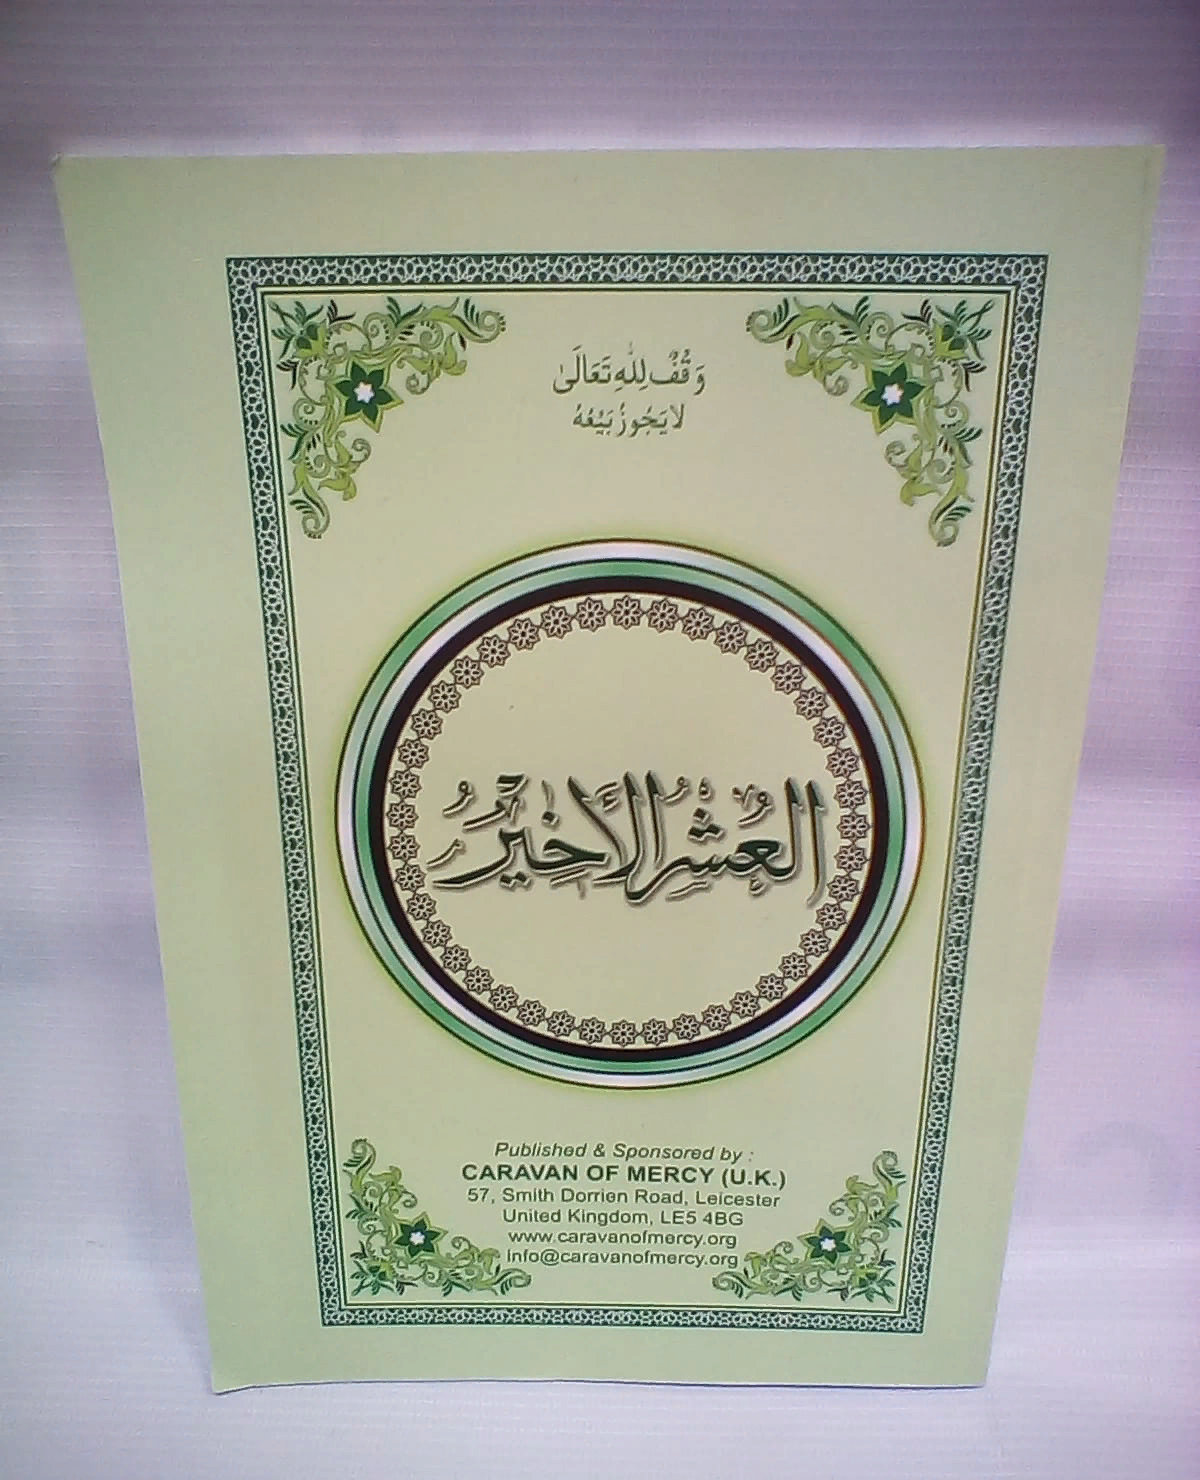 وَقْفٌ لِلّٰهِ تَعَالَىٰ
لَا يَجُوزُ بَيْعُهُ
العُشْرُ الأَخِيْرُ
Published & Sponsored by :
CARAVAN OF MERCY (U.K.)
57, Smith Dorrien Road, Leicester
United Kingdom, LE5 4BG
www.caravanofmercy.org
info@caravanofmercy.org